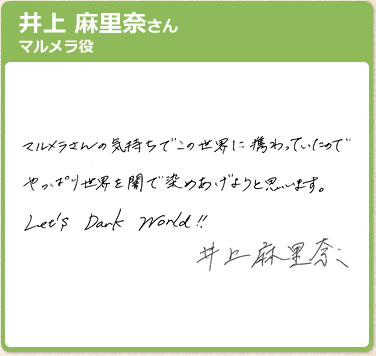 井上 麻里奈さん
マルメラ役
マルメラさんの気持ちでこの世界に携わっていたので
やっぱり世界を闇で染めあげようと思います。
Let's Dark World!!
井上麻里奈